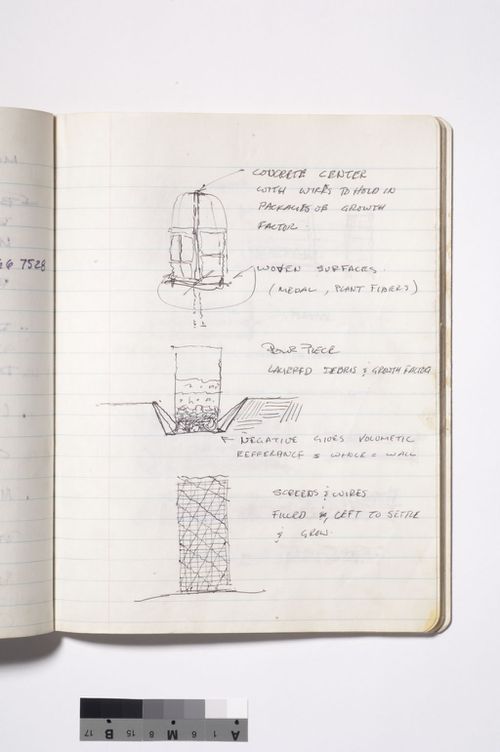 CONCRETE CENTER
WITH WIRES TO HOLD IN
PACKAGES OF GROWTH
FACTOR
66 7528
WOVEN SURFACES.
(MEDAL, PLANT FIBERS)
POUR PIECE
LAYERED DEBRIS & GROWTH FACTOR
NEGATIVE GIVES VOLUMETIC
REFFERANCE & WHOLE = WALL
SCREENS & WIRES
FILLED &, LEFT TO SETTLE
& GROW.
A 1 M 8 15 B 17